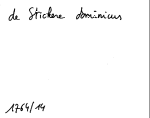 de Stickere dominicus
1764/14